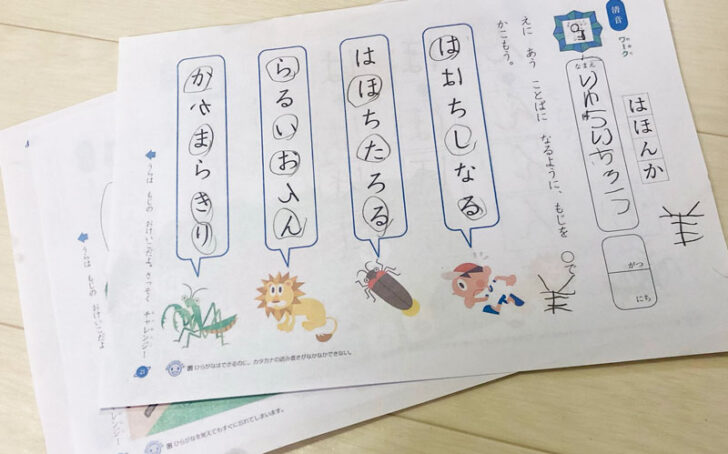 清音
ワーク
はほんか
なまえ
りゅういちろう
がつ
にち
えに あう ことばに なるように、もじを ○で
かこもう。
はおちしなる
はほちたろる
らるいおんん
かさまらきり
うらは もじの おけいこだよ。さっそく チャレンジー
ひらがなはできるのに、カタカナの読み書きがなかなかできない。
うらは もじの おけいこだよ
ひらがなを覚えてもすぐに忘れてしまいます。